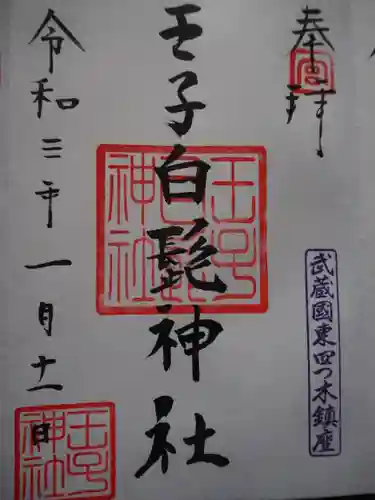 奉拝
武蔵國東四つ木鎮座
王子白髭神社
王子白髭神社
令和三年一月十一日
王子神社